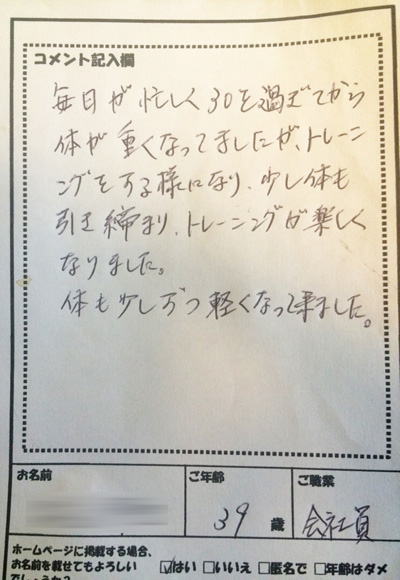 コメント記入欄
毎日が忙しく30を過ぎてから
体が重くなってましたが、トレーニ
ングをする様になり、少し体も
引き締まり、トレーニングが楽しく
なりました。
体も少しずつ軽くなって来ました。
お名前
ご年齢
ご職業
39 歳
会社員
ホームページに掲載する場合、
お名前を載せてもよろしい
でしょうか?
☑はい □いいえ □匿名で □年齢はダメ